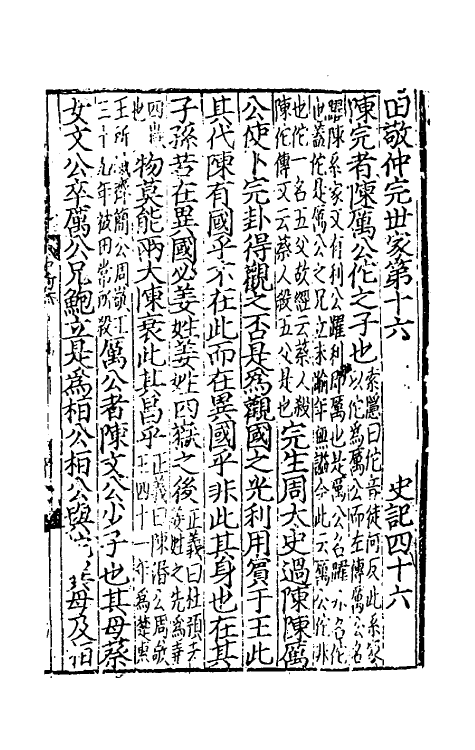 田敬仲完世家第十六 史記四十六
陳完者陳厲公佗之子也
索隱曰佗音徒何反此系家
以佗為厲公而左傳厲公名
躍陳系家又有利公躍利即厲也是厲公名躍名佗
也蓋佗是厲公之兄立未踰年無謚今此云厲公佗非
也佗一名五父故經云蔡人殺
陳佗傳又云蔡人殺五父是也
完生周太史過陳陳厲
公使卜完卦得觀之否是爲觀國之光利用賓于王此
其代陳有國乎不在此而在異國乎非此其身也在其
子孫若在異國必姜姓姜姓四嶽之後
正義曰杜預云
姜姓之先為堯
四嶽
也
物莫能兩大陳衰此其昌乎
正義曰陳湣公周敬
王四十一年為楚惠
王所滅齊簡公周敬王
三十九年被田常所殺
厲公者陳文公少子也其母蔡
女文公卒厲公兄鮑立是爲桓公桓公與母及桓